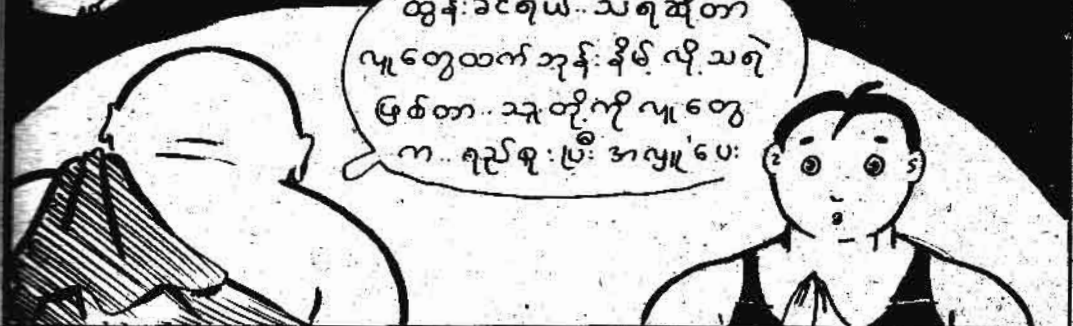 ထွန်းခင်ရယ်.. သရဲဆိုတာ
လူတွေထက် ဘုန်းနိမ့် လို့ သရဲ
ဖြစ်တာ.. သူတို့ကို လူတွေ
က.. ရည်စူးပြီး အလှူပေး